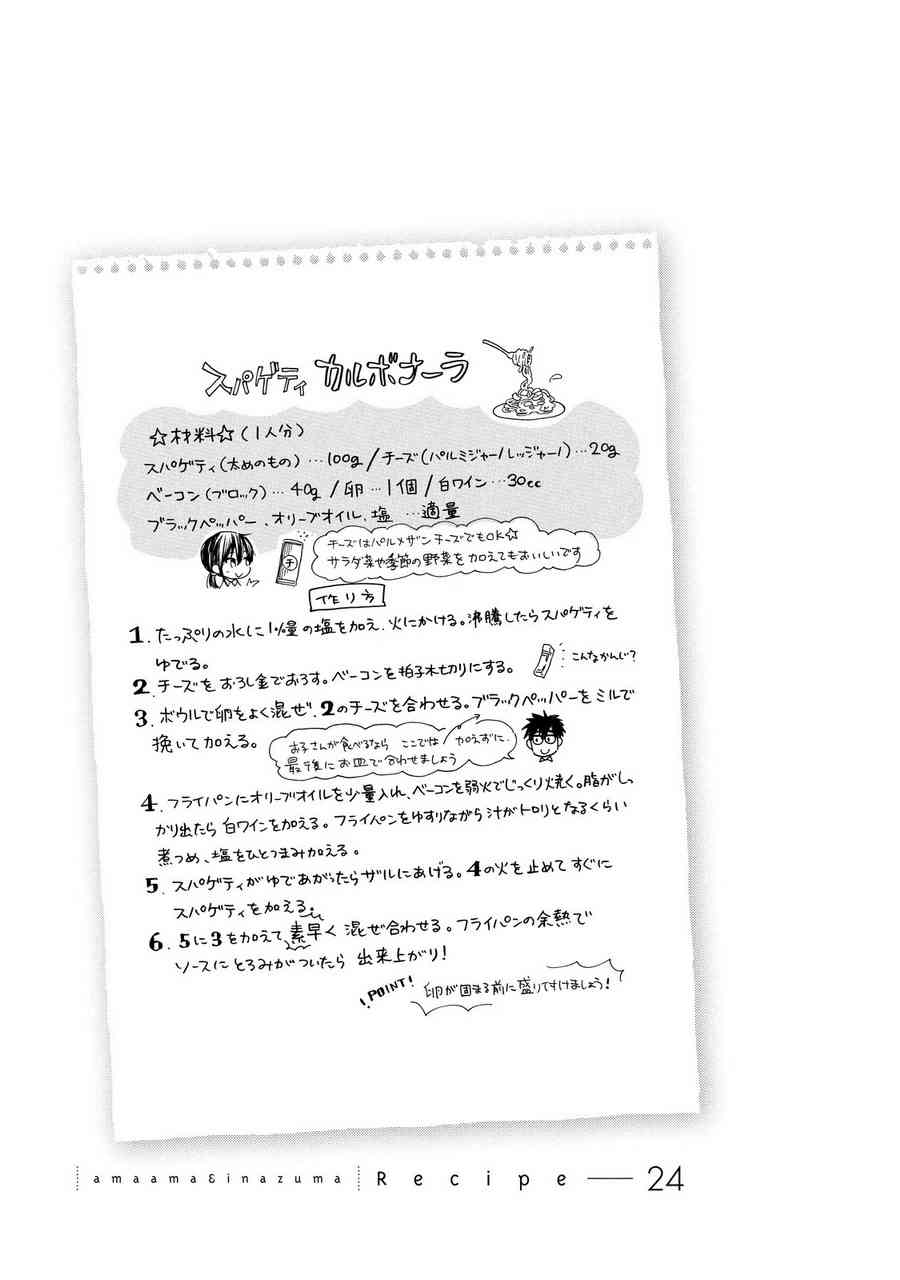 スパゲティ カルボナーラ
☆材料☆(1人分)
スパゲティ(太めのもの)…100g/チーズ(パルミジャーノレッジャーノ)…20g
ベーコン(ブロック)…40g/卵…1個/白ワイン…30cc
ブラックペッパー、オリーブオイル、塩…適量
チ
チーズはパルメザンチーズでもOK☆
サラダ菜や季節の野菜を加えてもおいしいです
作り方
1.たっぷりの水に1%量の塩を加え、火にかける。沸騰したらスパゲティを
ゆでる。
2.チーズをおろし金でおろす。ベーコンを拍子木切りにする。
こんなかんじ?
3.ボウルで卵をよく混ぜ、2のチーズを合わせる。ブラックペッパーをミルで
挽いて加える。
お子さんが食べるなら ここでは 加えずに、
最後にお皿で合わせましょう
4.フライパンにオリーブオイルを少量入れ、ベーコンを弱火でじっくり焼く。脂がしっ
かり出たら白ワインを加える。フライパンをゆすりながら汁がトロリとなるくらい
煮つめ、塩をひとつまみ加える。
5.スパゲティがゆであがったらザルにあげる。4の火を止めてすぐに
スパゲティを加える。
6.5に3を加えて素早く混ぜ合わせる。フライパンの余熱で
ソースにとろみがついたら 出来上がり!
!POINT! 卵が固まる前に盛り付けましょう!
amaama&inazuma Recipe — 24